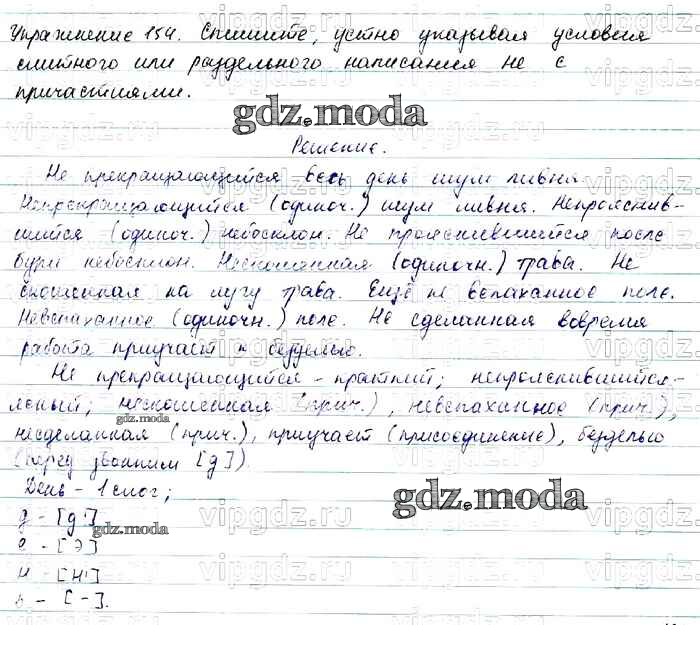 Упражнение 154. Спишите, устно указывая условия
слитного или раздельного написания не с
причастиями.
gdz.moda
Решение.
Не прекращающийся весь день шум ливня.
Непрекращающийся (одиноч.) шум ливня. Непрояснив-
шийся (одиноч.) небосклон. Не прояснившийся после
бури небосклон. Нескошенная (одиночн.) трава. Не
скошенная на лугу трава. Ещё не вспаханное поле.
Невспаханное (одиночн.) поле. Не сделанная вовремя
работа приучает к безделью.
Не прекращающийся - краткий; непрояснившийся-
ясный; нескошенная (прич.), невспаханное (прич.),
gdz.moda
несделанная (прич.), приучает (присоединение), безделью
(перед звонким [д]).
День - 1 слог;
gdz.moda
д - [д']
gdz.moda
е - [э]
н - [н']
ь - [-].
vipgdz.ru